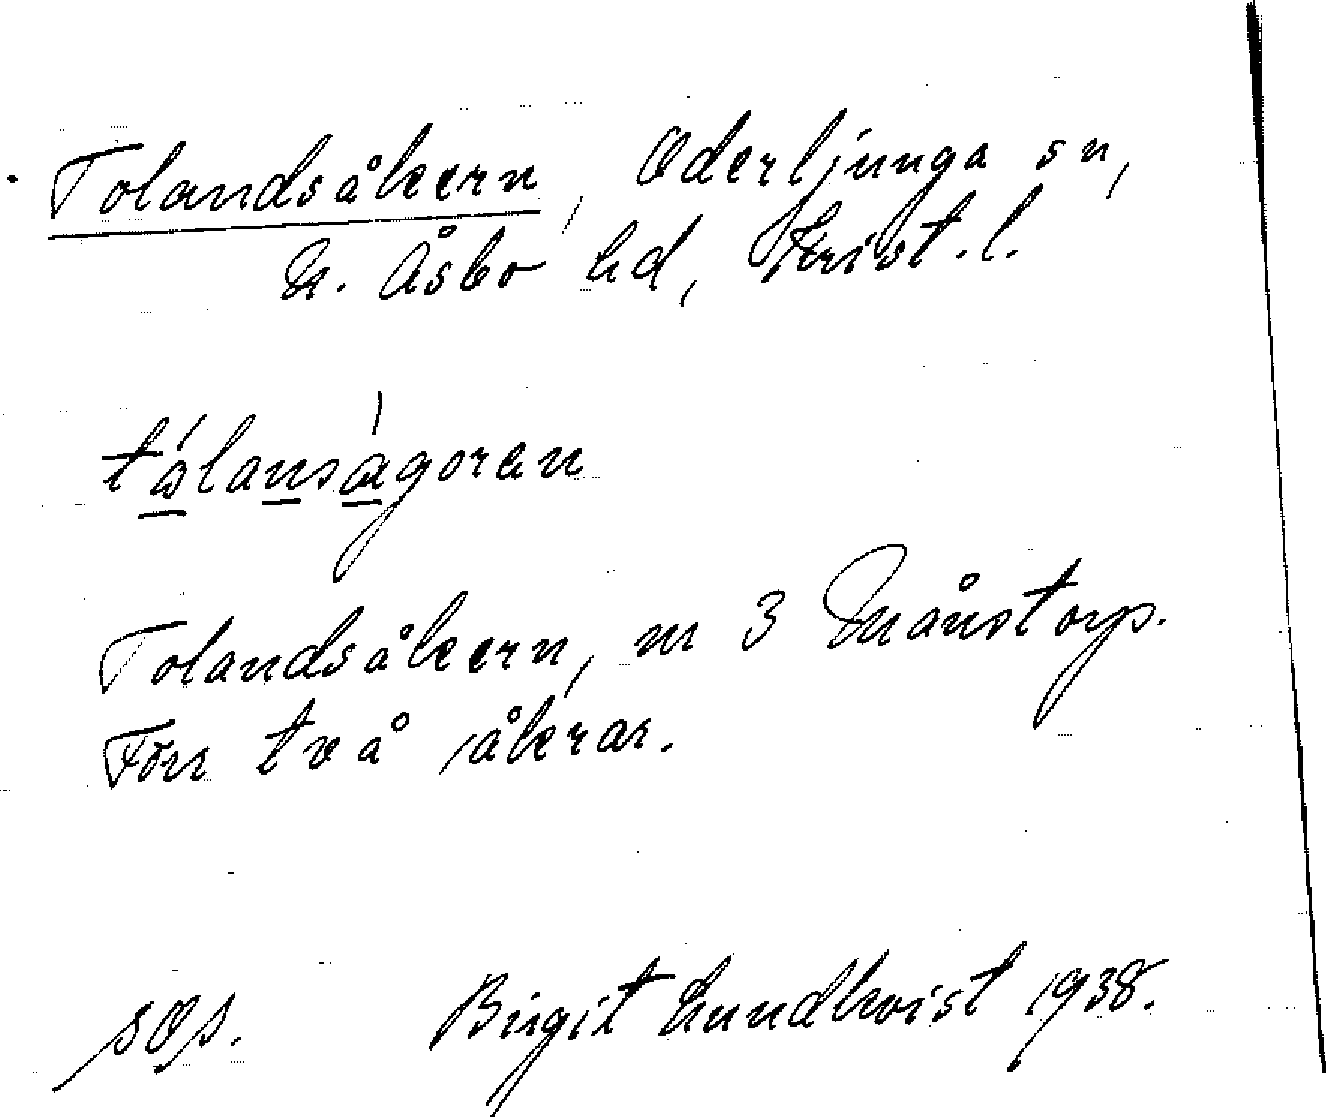 Tolandsåkern, Oderljunga sn,
N. Åsbo hd, Krist. l.
tålansågoren
Tolandsåkern, nr 3 Månstorp.
Förr två åkrar.
Birgit Lundkvist 1938.